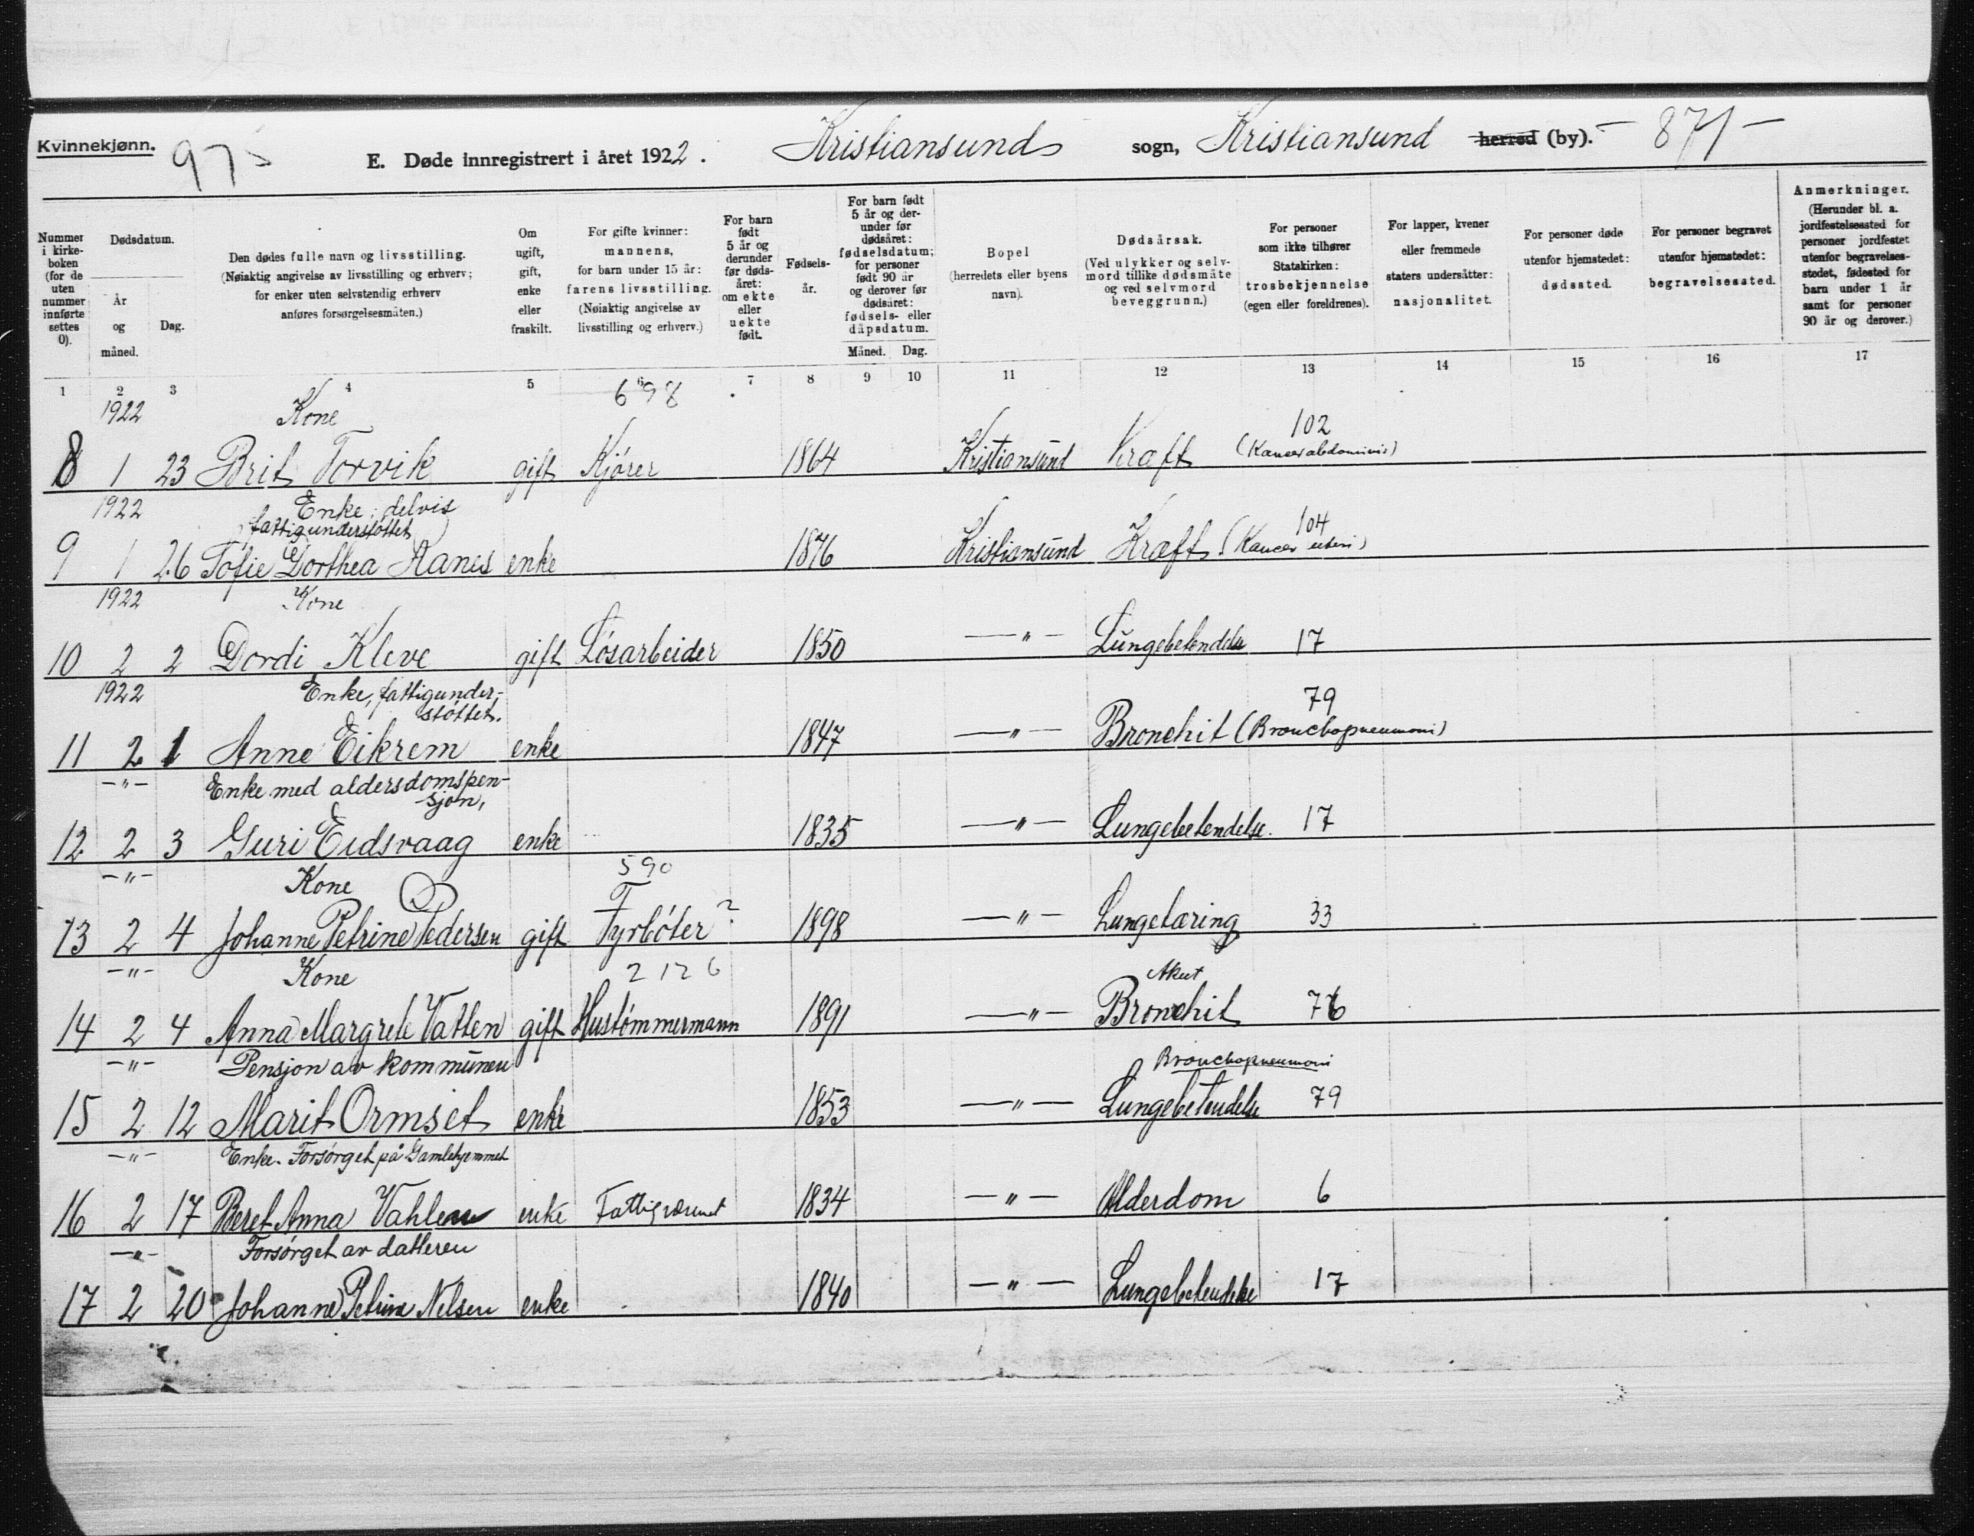 Kvinnekjønn.
975
E. Døde innregistrert i året 1922. Kristiansunds sogn, Kristiansund herred (by). - 871 -
Nummer i kirkeboken (for de uten nummer innførte settes 0).
Dødsdatum.
År og måned.
Dag.
Den dødes fulle navn og livsstilling.
(Nøiaktig angivelse av livsstilling og erhverv;
for enker uten selvstendig erhverv
anføres forsørgelsesmåten.)
Om ugift, gift, enke eller fraskilt.
For gifte kvinner: mannens, for barn under 15 år: farens livsstilling. (Nøiaktig angivelse av livsstilling og erhverv.)
For barn født 5 år og derunder før dødsåret: om ekte eller uekte født.
Fødselsår.
For barn født 5 år og derunder før dødsåret: fødselsdatum; for personer født 90 år og derover før dødsåret: fødsels- eller dåpsdatum.
Måned. Dag.
Bopel (herredets eller byens navn).
Dødsårsak. (Ved ulykker og selvmord tillike dødsmåte og ved selvmord beveggrunn.)
For personer som ikke tilhører Statskirken: trosbekjennelse (egen eller foreldrenes).
For lapper, kvener eller fremmede staters undersåtter: nasjonalitet.
For personer døde utenfor hjemstedet: dødssted.
For personer begravet utenfor hjemstedet: begravelsessted.
Anmerkninger. (Herunder bl. a. jordfestelsessted for personer jordfestet utenfor begravelsesstedet, fødested for barn under 1 år samt for personer 90 år og derover.)
1 2 3 4 5 6 7 8 9 10 11 12 13 14 15 16 17
1922 Kone 698 102
8 1 23 Brit Torvik gift Kjører 1864 Kristiansund Kræft (Kancer abdominis)
1922 Enke; delvis
fattigunderstøttet 104
9 1 26 Tofie Dorthea Ranes enke 1876 Kristiansund Kræft (Kancer uteri)
1922 Kone
10 2 2 Dordi Kleve gift Løsarbeider 1850 —"— Lungebetendelse 17
1922 Enke, fattigunder-
støttet. 79
11 2 1 Anne Eikrem enke 1847 —"— Bronchit (Bronchopneumoni)
—"— Enke med aldersdomspen-
sjon,
12 2 3 Guri Eidsvaag enke 1835 —"— Lungebetendelse. 17
—"— Kone 590
13 2 4 Johanne Petrine Pedersen gift Fyrbøter ? 1898 —"— Lungetæring 33
—"— Kone 2126 Akut
14 2 4 Anna Margrete Vatten gift Hustømmermann 1891 —"— Bronchit 76
—"— Pensjon av kommunen Bronchopneumoni
15 2 12 Marit Ormset enke 1853 —"— Lungebetendelse 79
—"— Enke. Forsørget på Gamlehjemmet
16 2 17 Beret Anna Vahlen enke Fattigvæsenet 1834 —"— Alderdom 6
—"— Forsørget av datteren
17 2 20 Johanne Petrine Nelsen enke 1840 —"— Lungebetendelse 17